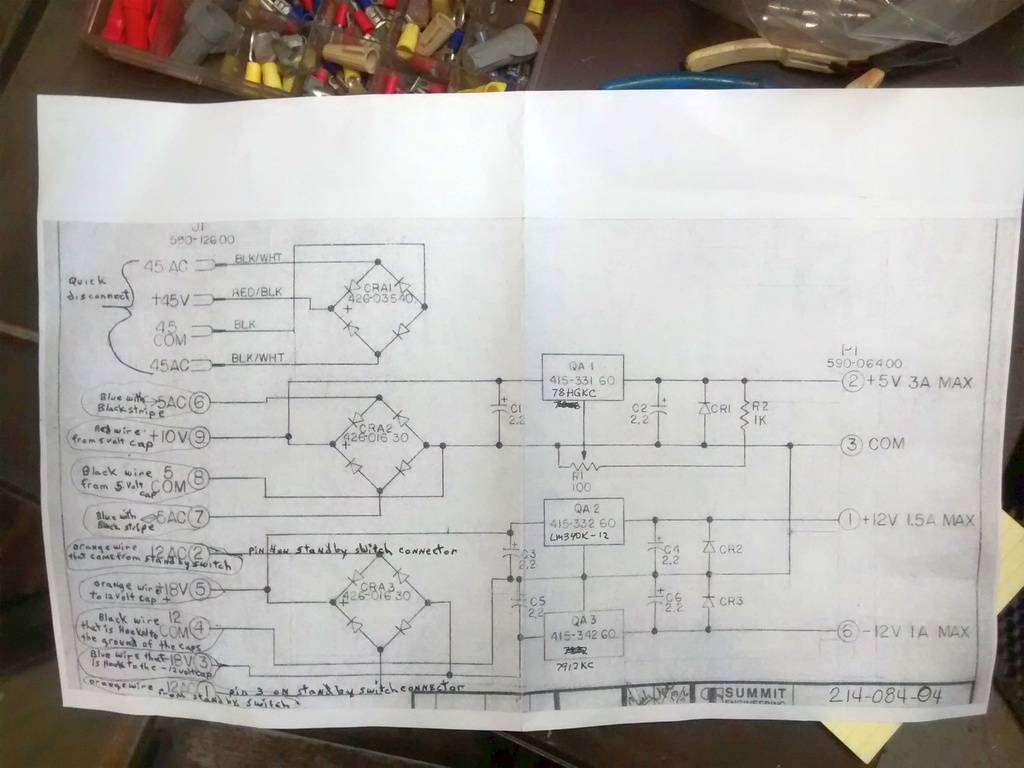 J1
590-12600
45 AC
BLK/WHT
Quick
disconnect
+45V
RED/BLK
45
COM
BLK
45AC
BLK/WHT
CRA1
426-03540
+
Blue with
Black stripe
5AC 6
Red wire
from 5 volt cap
+10V 9
Black wire
from 5 volt
cap
5
COM 8
Blue with
Black stripe
5AC 7
CRA2
426-016 30
+
C1
2.2
+
QA 1
415-331 60
78HGKC
C2
2.2
+
CR1
R2
1K
R1
100
P1
590-06400
2 +5V 3A MAX
3 COM
orange wire
that comes from standby switch
12AC 2
pin 4 on standby switch connector
orange wire
to 12 volt cap +
+18V 5
Black wire
that is Hooked to
the ground of the caps
12
COM 4
Blue wire that
is Hook to the -12 volt cap
-18V 3
orange wire
from standby switch
pin 3 on standby switch connector
CRA3
426-016 30
+
C3
2.2
+
C5
2.2
QA 2
415-332 60
LM340K-12
C4
2.2
+
CR2
QA 3
415-342 60
7912KC
C6
2.2
+
CR3
1 +12V 1.5A MAX
6 -12V 1A MAX
SUMMIT
ENGINEERING
214-084-04